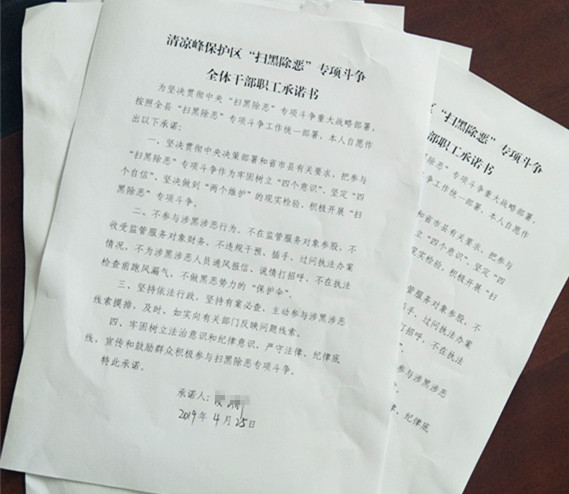 清凉峰保护区“扫黑除恶”专项斗争
全体干部职工承诺书
为坚决贯彻中央“扫黑除恶”专项斗争重大战略部署,
按照全县“扫黑除恶”专项斗争工作统一部署,本人自愿作
出以下承诺:
一、坚决贯彻中央决策部署和省市县有关要求,把参与
“扫黑除恶”专项斗争作为牢固树立“四个意识”,坚定“四
个自信”,坚决做到“两个维护”的现实检验,积极开展“扫
黑除恶”专项斗争。
二、不参与涉黑涉恶行为,不在监管服务对象参股,不
收受监管服务对象财务,不违规干预、插手、过问执法办案
情况,不为涉黑涉恶人员通风报信、说情打招呼,不在执法
检查前跑风漏气,不做黑恶势力的“保护伞”。
三、坚持依法行政,坚持有案必查,主动参与涉黑涉恶
线索摸排,及时、如实向有关部门反映问题线索。
四、牢固树立法治意识和纪律意识,严守法律、纪律底
线,宣传和鼓励群众积极参与扫黑除恶专项斗争。
特此承诺。
承诺人:
2019年4月25日
区“扫黑除恶”专项斗争
部职工承诺书
除恶”专项斗争重大战略部署,
争工作统一部署,本人自愿作
和省市县有关要求,把参与
“四个意识”,坚定“四
现实检验,积极开展“扫
管服务对象参股,不
手、过问执法办案
打招呼,不在执法
与涉黑涉恶
法律、纪律底